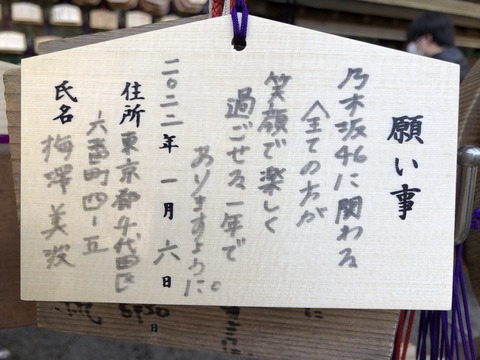 願い事
乃木坂46に関わる
全ての方が
笑顔で楽しく
過ごせる一年で
ありますように。
二〇二二年 一月 六日
住所 東京都千代田区
六番町四-五
氏名 梅澤美波